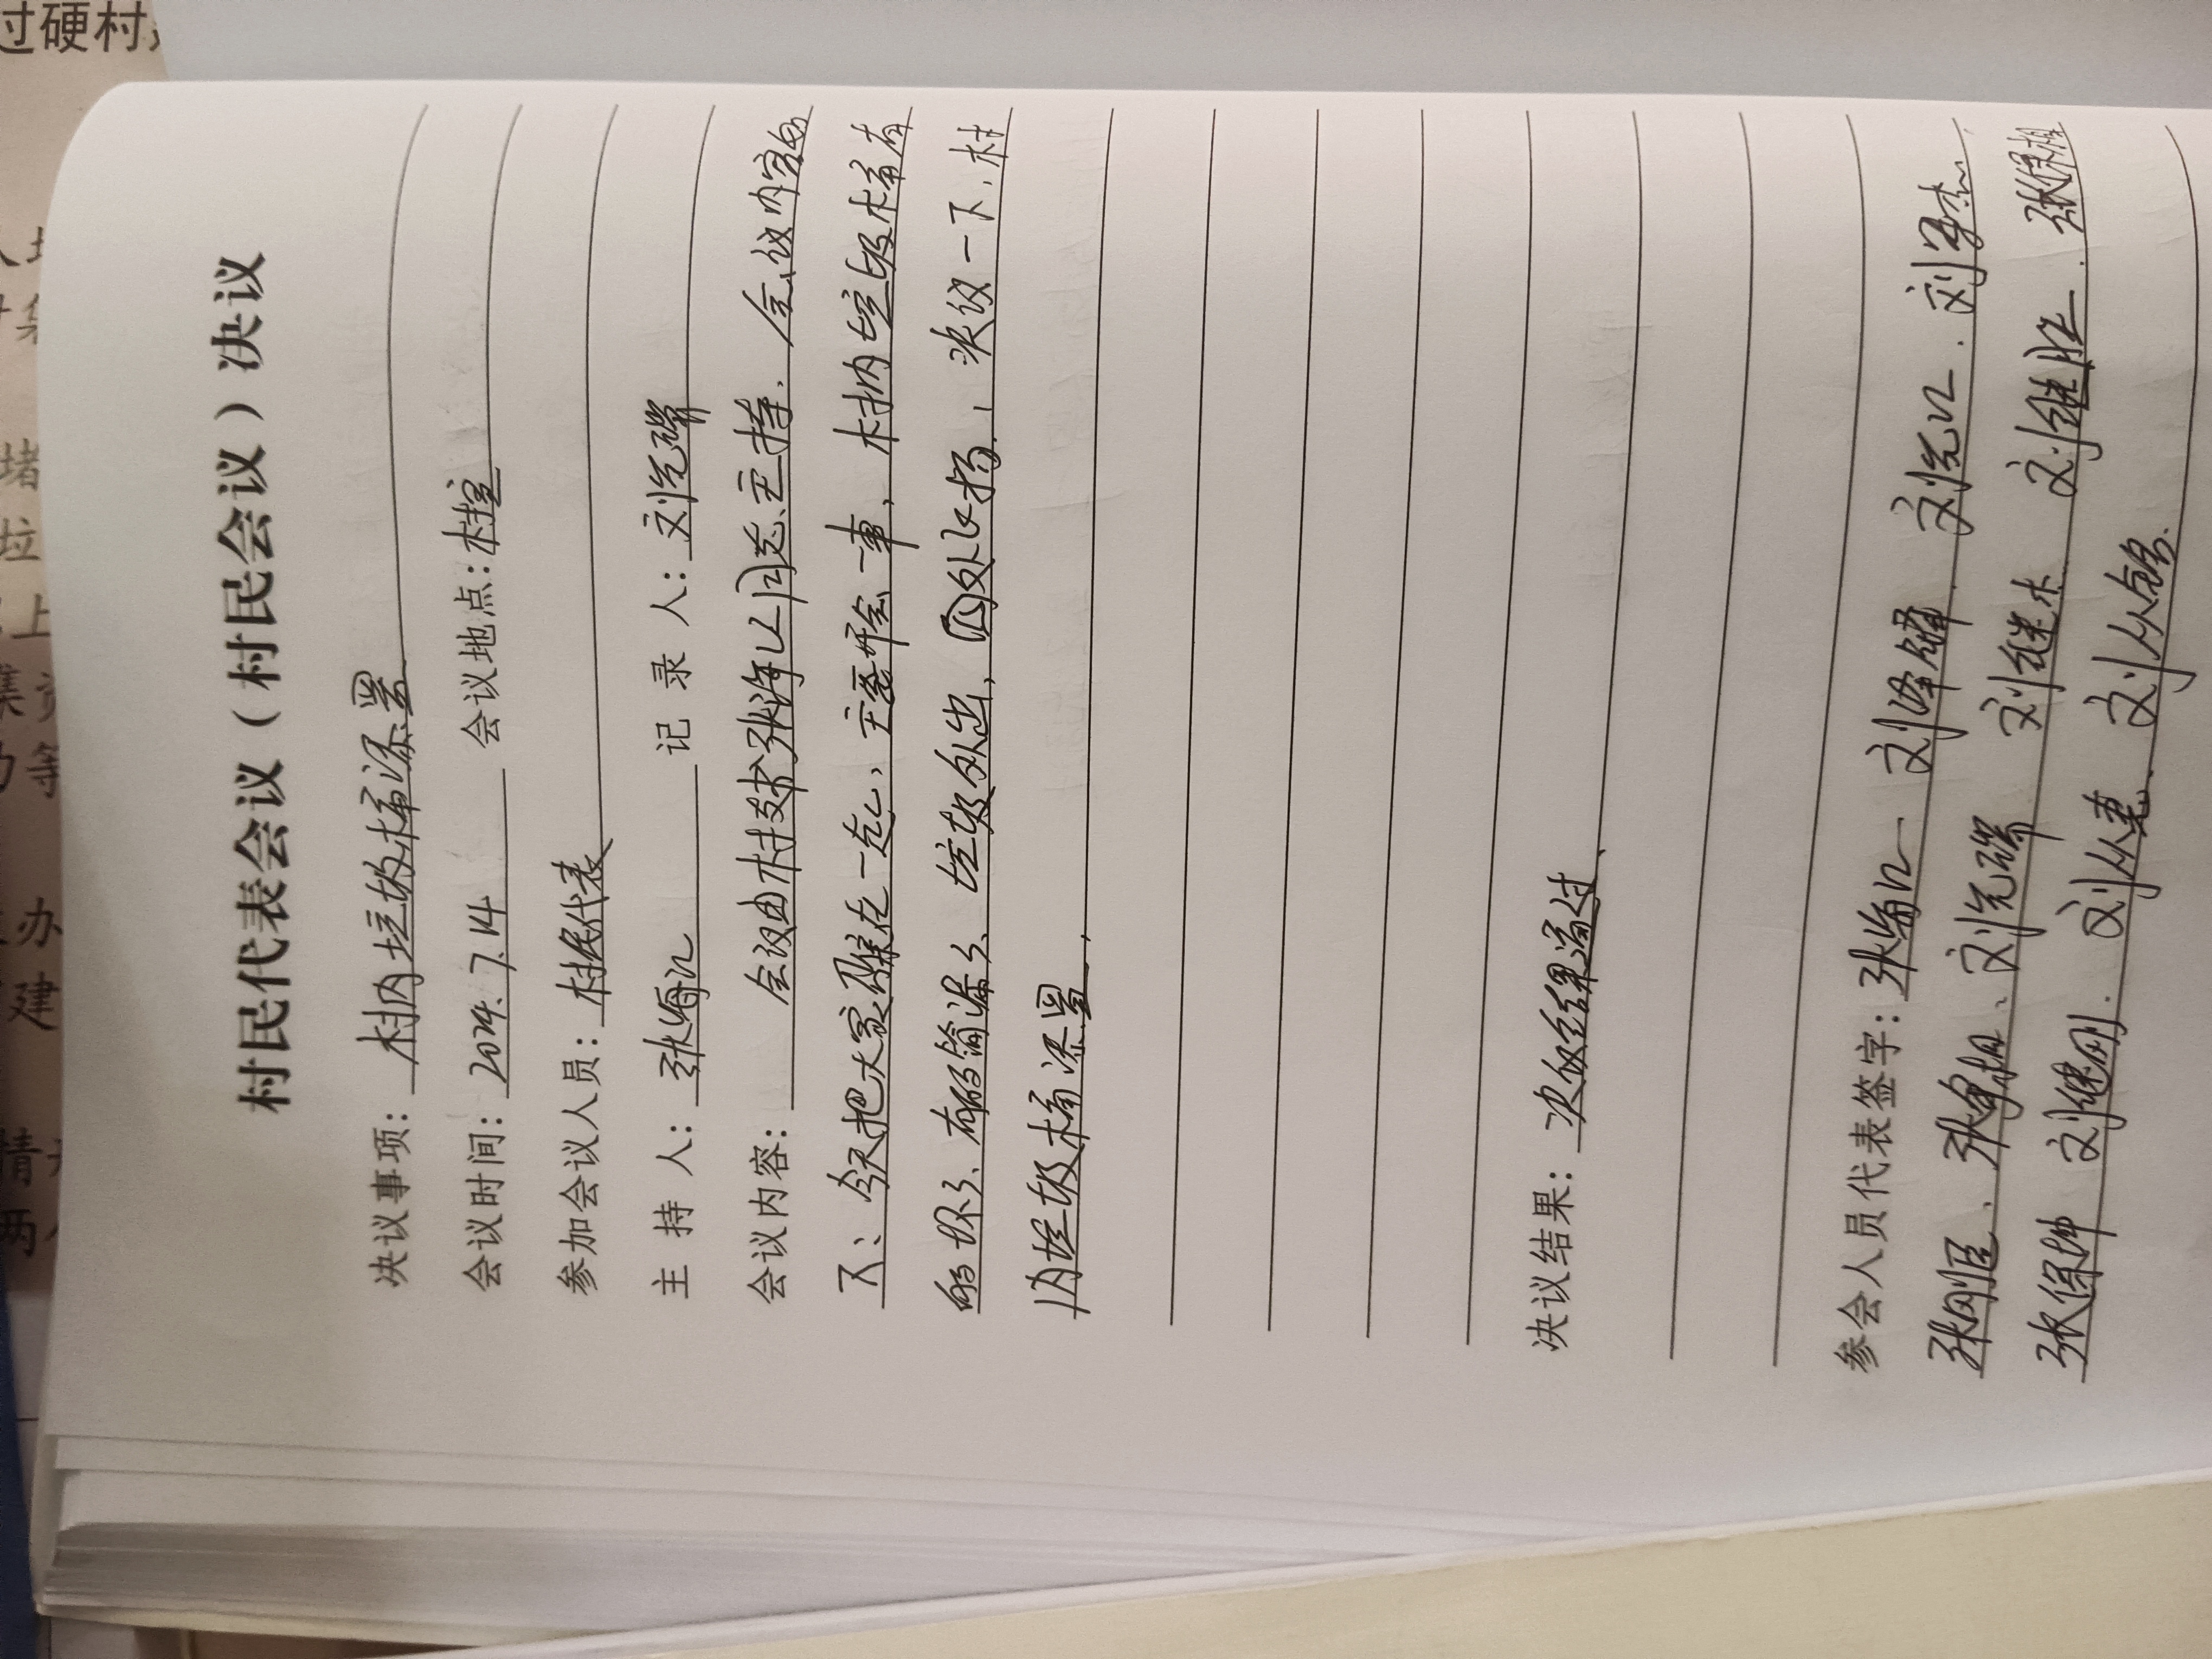 村民代表会议（村民会议）决议
决议事项：村内垃圾桶添置
会议时间：2024.7.14 会议地点：村室
参加会议人员：村民代表
主 持 人：张海江 记 录 人：刘先
会议内容：会议由村支书张海江同志主持．会议内容如
下：今天把大家聚在一起，主要开会一事，村内垃圾桶有
的坏了、有的输漏了、垃圾外出，四处飞扬，决议一下．村
内垃圾桶添置，
决议结果：决议结果通过、
参会人员代表签字：张海江 刘 刘先江．刘
张刚臣、张 、刘先 刘继 刘继胜．张保
张保坤 刘继刚．刘从 ．刘从
过硬村
垃
上
集资
力等
办
建
情
两